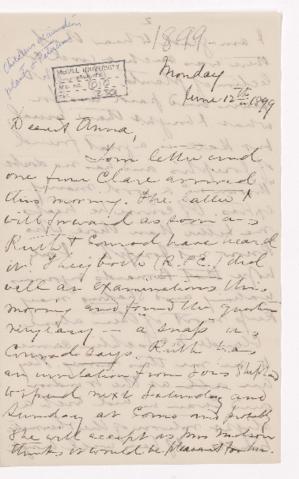 1899
Monday
June 12th 1899
Dearest Anna,
Your letter and
one from Clare arrived
this morning. The latter I
will forward as soon as
Ruth & Conrad have heard
it. Theophilo (R.P.E.) did
well in examinations this
morning and found the questions
very easy - "a snap" as
Conrad says. Ruth has
an invitation from Lois
to spend next Saturday and
Sunday at Como and probably
she will accept as Mrs
thinks it would be pleasant for her.